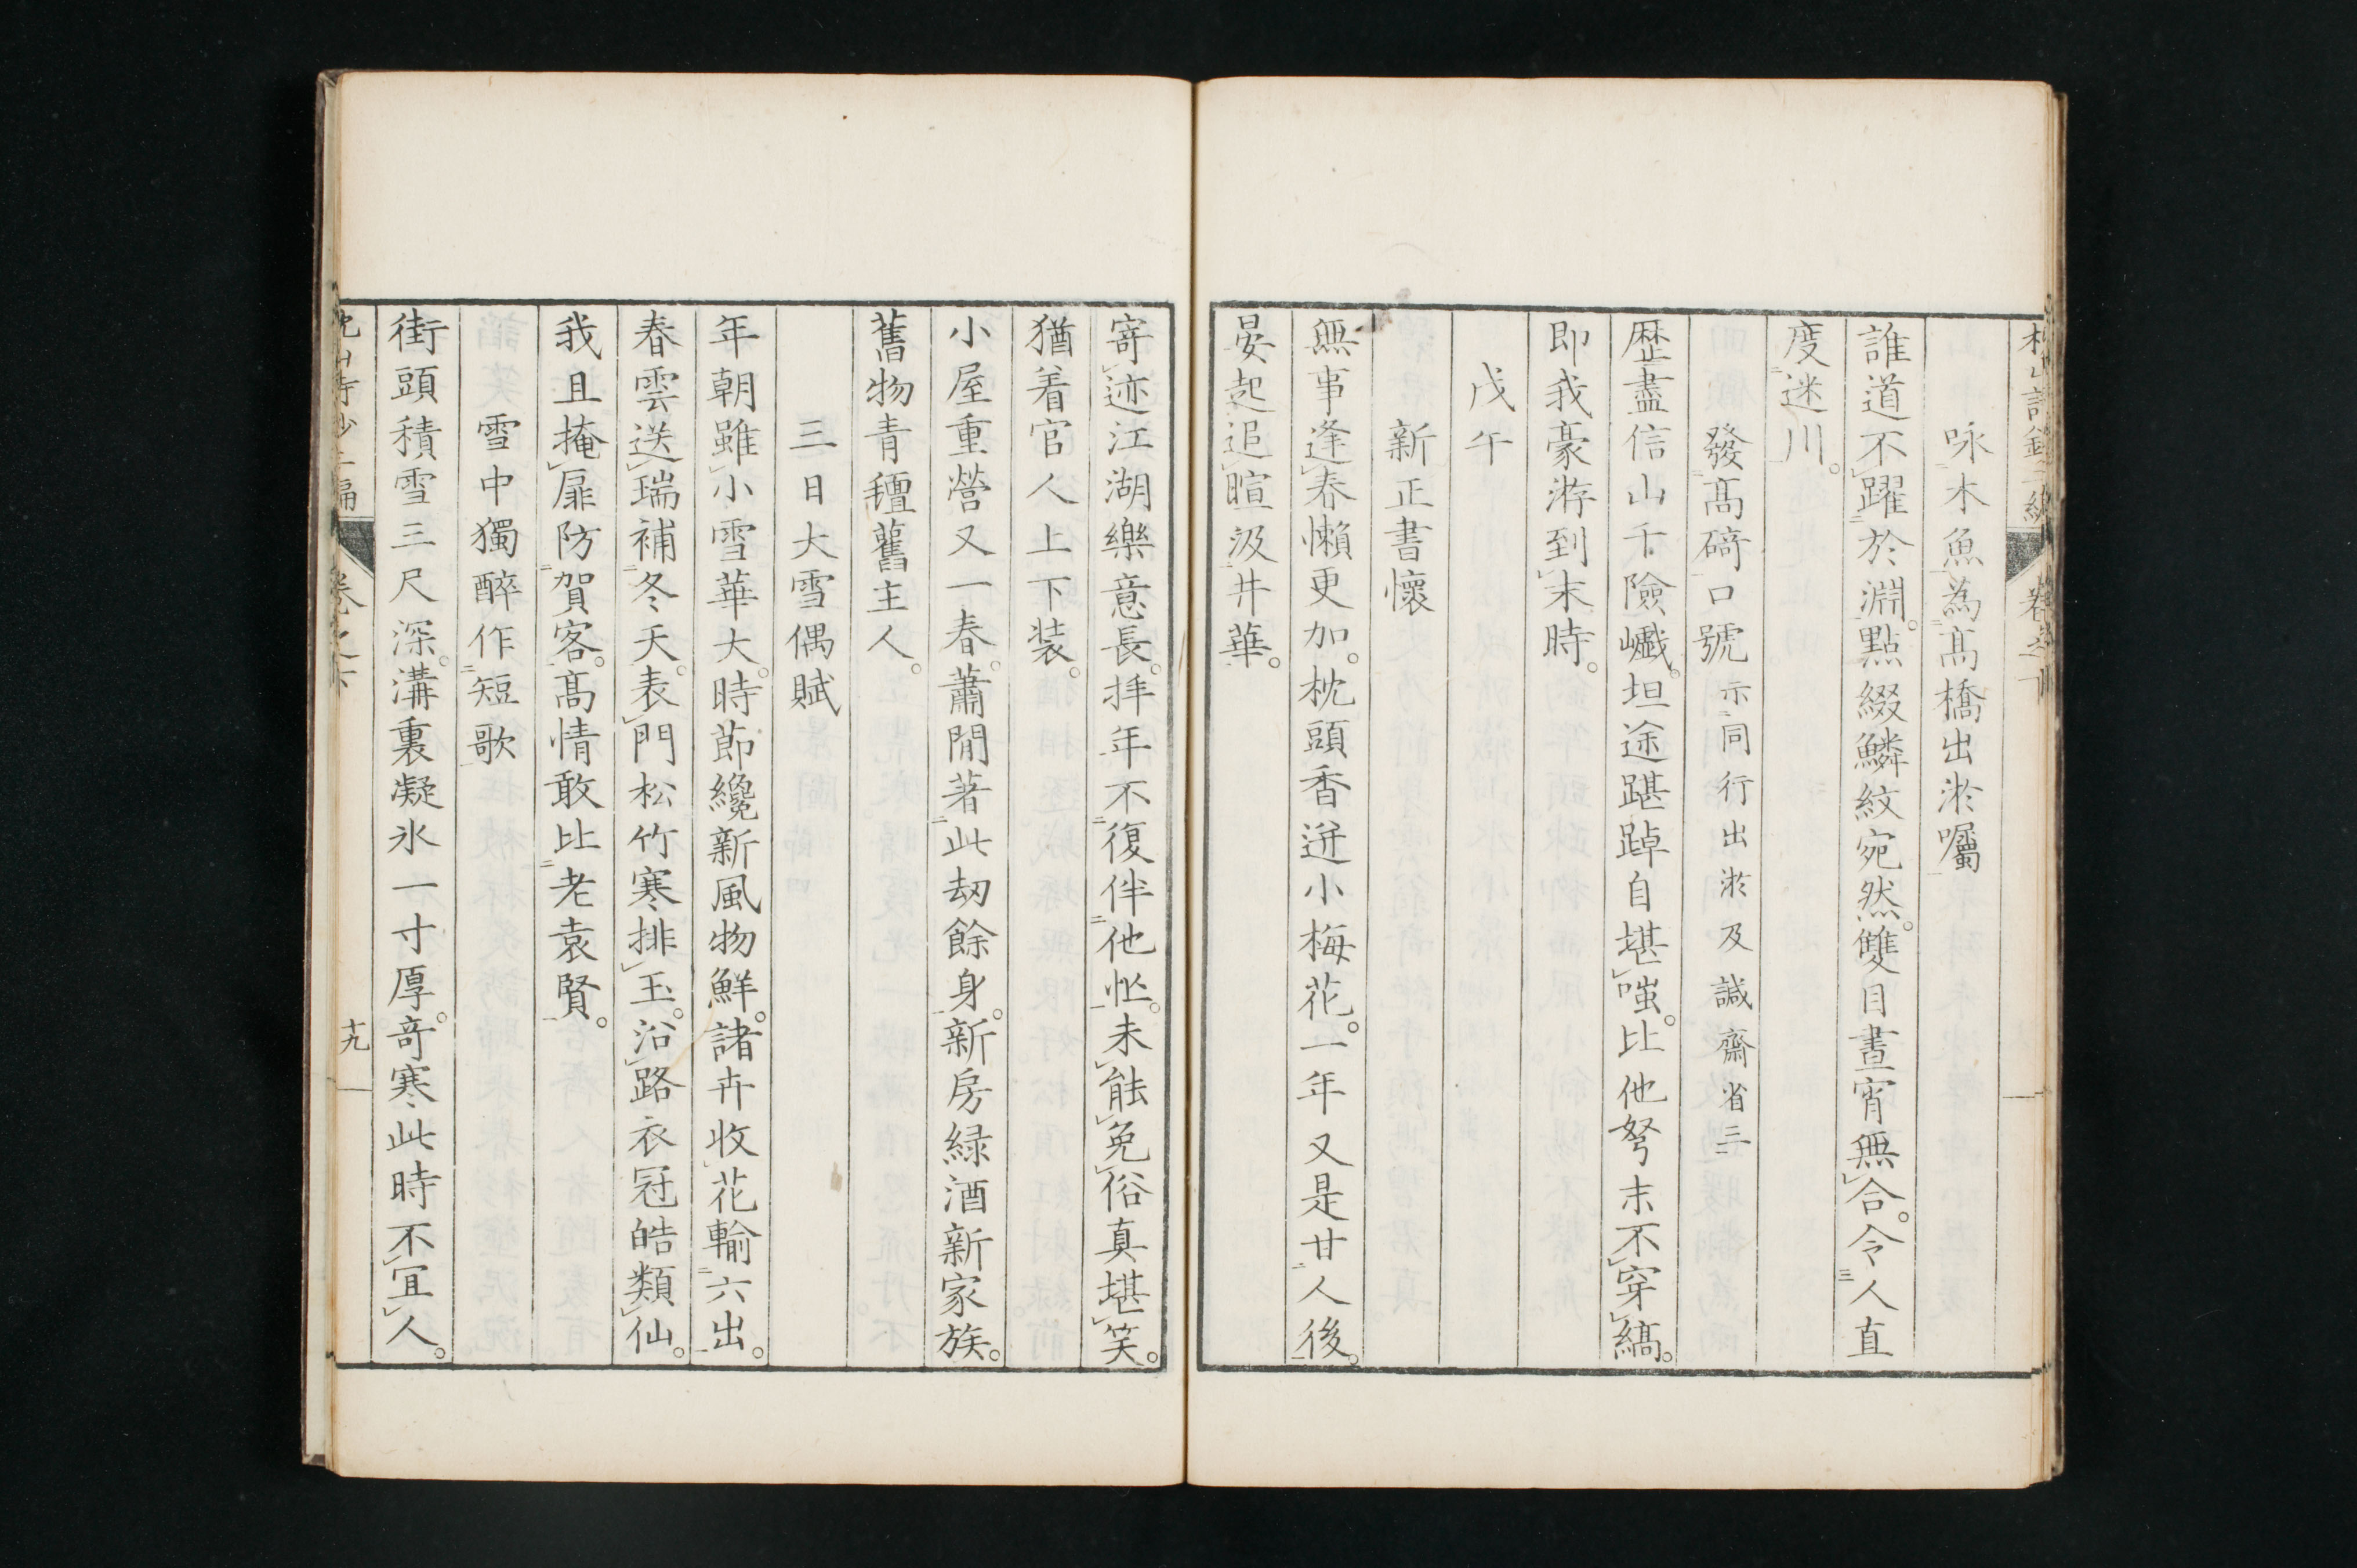 咏木魚為髙橋出淤囑
誰道不躍於淵。點綴鱗紋宛然。雙目晝宵無合。令人直
度迷川。
發髙碕口號 示同行出淤及誠齋省三
歴盡信山千險巇。坦途踸踔自堪嗤。比他弩末不穿縞。
即我豪游到末時。
戊午
新正書懷
無事逢春懶更加。枕頭香迸小梅花。一年又是甘人後。
晏起追暄汲井華。
寄迹江湖樂意長。拝年不復伴他忙。未能免俗真堪笑。
猶着官人上下装。
小屋重營又一春。蕭閒著此劫餘身。新房緑酒新家族。
舊物青氊舊主人。
三日大雪偶賦
年朝雖小雪華大。時節纔新風物鮮。諸卉收花輸六出。
春雲送瑞補冬天。表門松竹寒排玉。沿路衣冠皓類仙。
我且掩扉防賀客。髙情敢比老袁賢。
雪中獨醉作短歌
街頭積雪三尺深。溝裏凝氷一寸厚。竒寒此時不宜人。
卷之下
十九